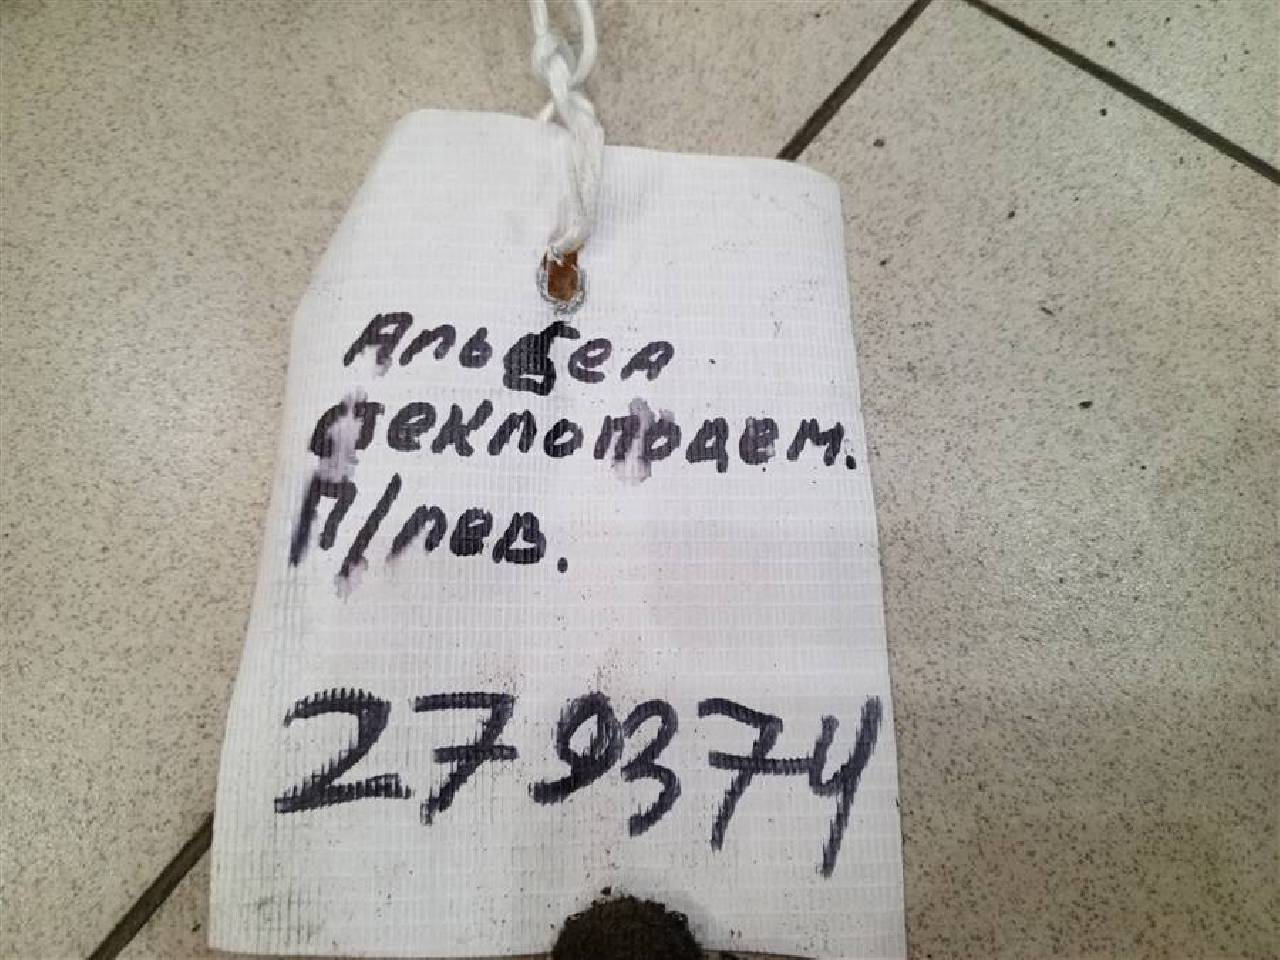 Альбеа
стеклоподем.
П/лев.
279374